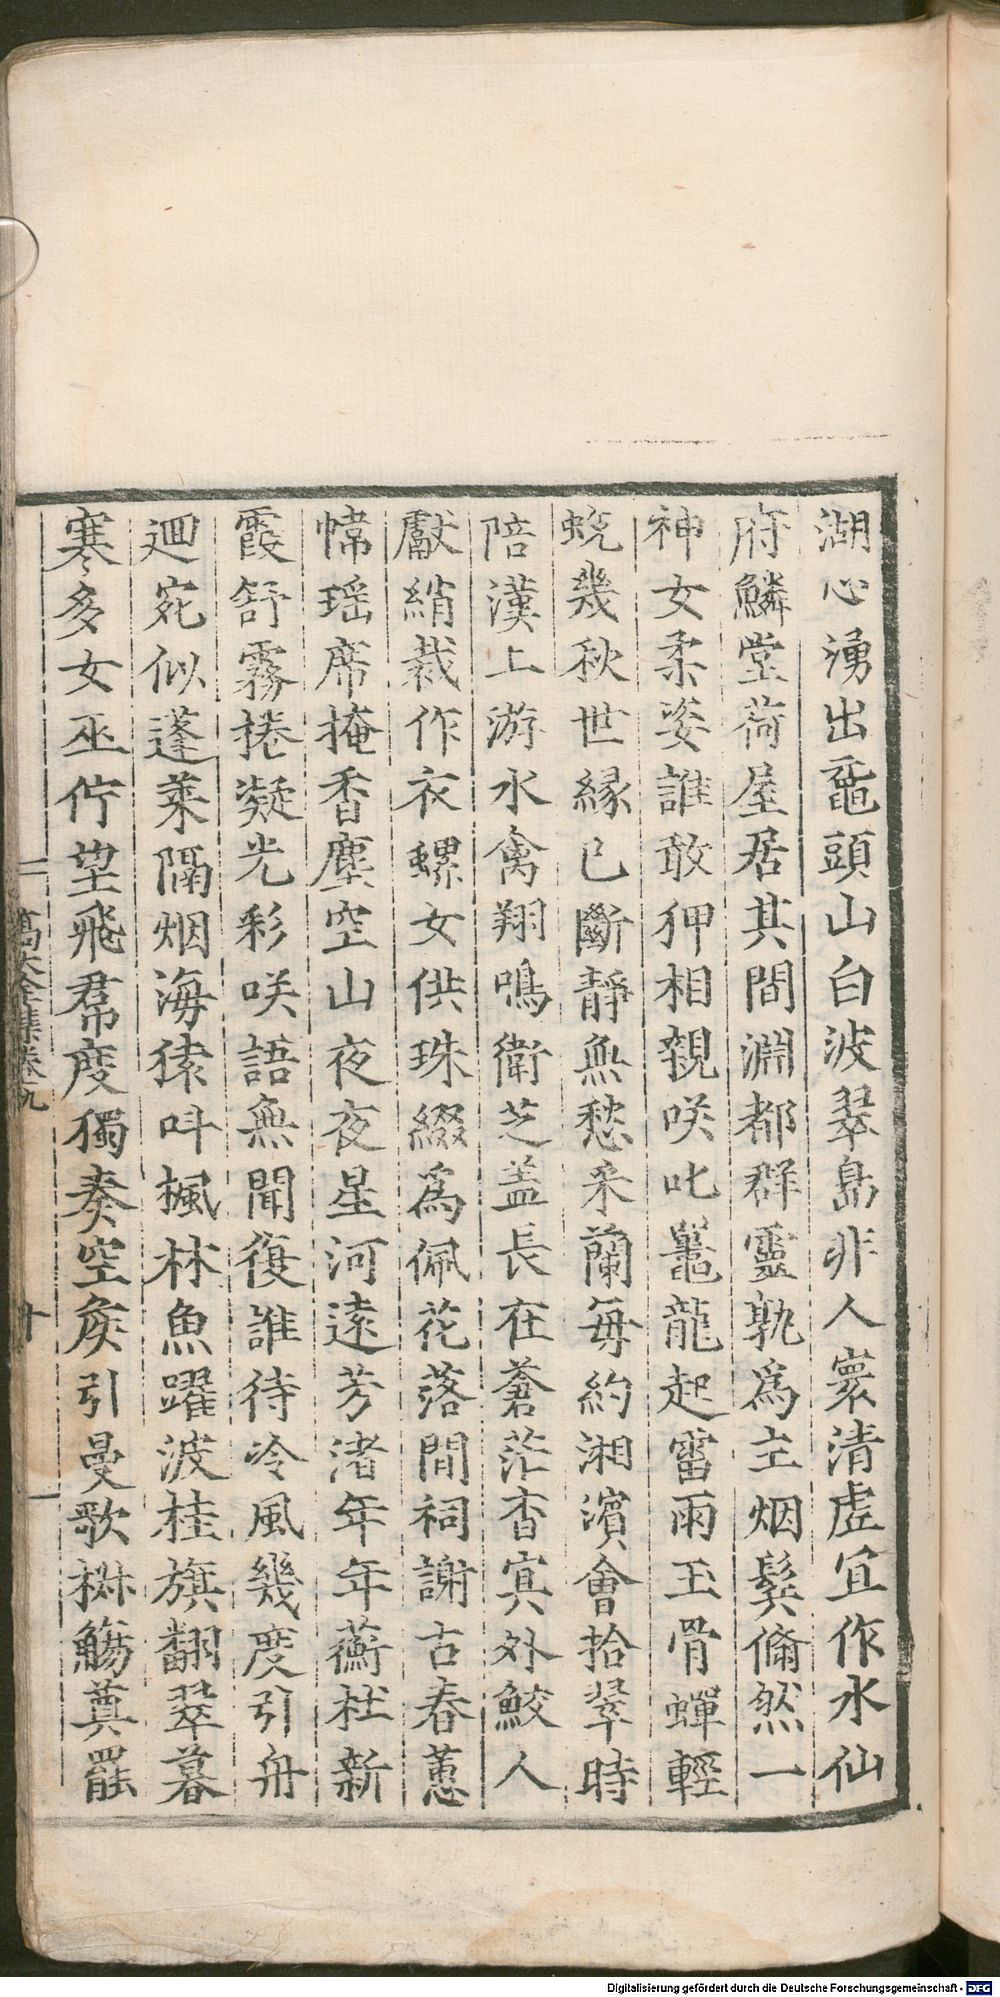 湖心湧出黿頭山白波翠島非人寰清虛宜作水仙
府鱗堂荷屋居其間淵都群靈孰爲主烟鬟翛然一
神女柔姿誰敢狎相親咲叱鼉龍起雷雨玉骨蟬輕
蛻幾秋世緣已斷靜無愁采蘭每約湘濱會拾翠時
陪漢上游水禽翔鳴衛芝蓋長在蒼茫杳冥外鮫人
獻綃裁作衣螺女供珠綴爲佩花落間祠謝古春蕙
幃瑶席掩香塵空山夜夜星河遠芳渚年年蘅杜新
霞舒霧捲凝光彩咲語無聞復誰待冷風幾度引舟
迴宛似蓬萊隔烟海猿呌楓林魚躍波桂旗翻翠暮
寒多女巫佇望飛帬度獨奏空矦引曼歌椒觴奠罷
高太全集卷九
十
Digitalisierung gefördert durch die Deutsche Forschungsgemeinschaft - DFG